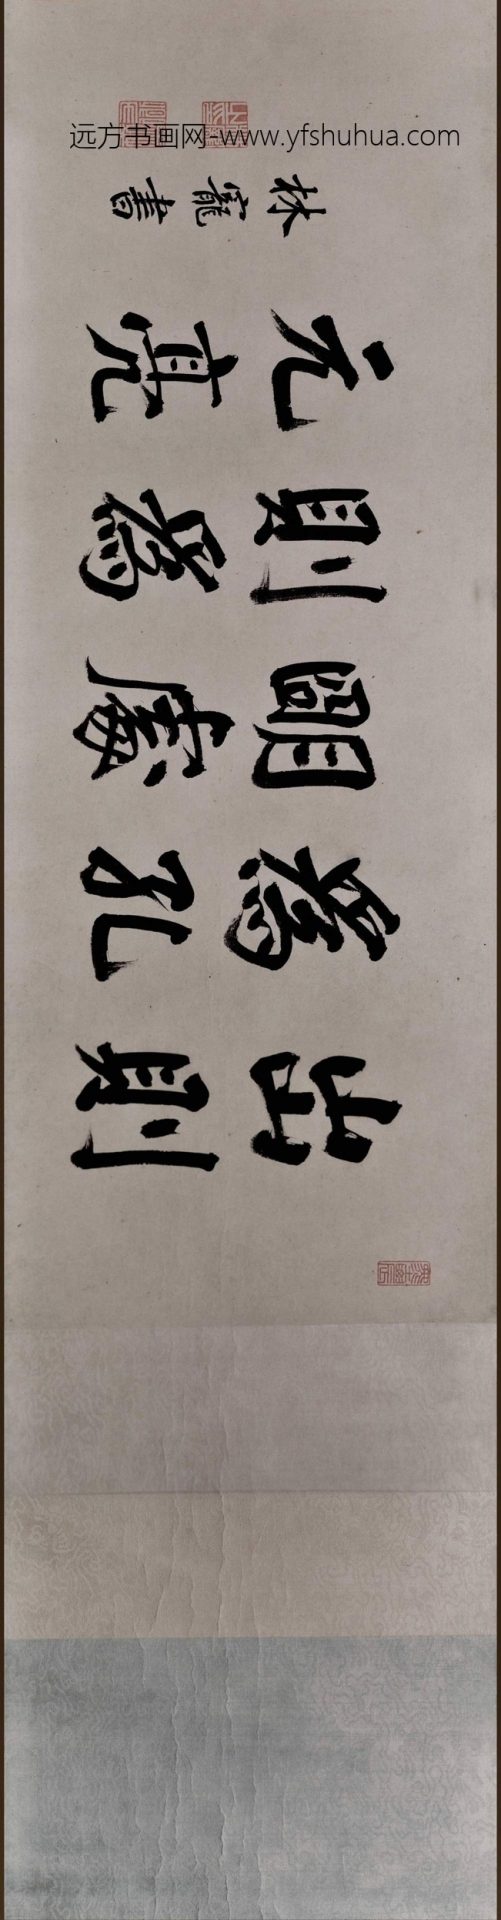 出則
為孔
明處
則為
元亮
林寵書
远方书画网-www.yfshuhua.com